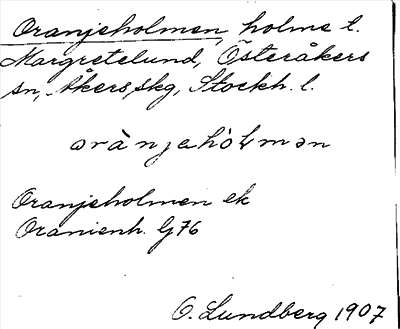 Oranjeholmen, holme t.
Margretelund, Österåkers
sn, Åkers skg, Stockh. l.
orànjehòlmən
Oranjeholmen ek
Oranienh. G76
O. Lundberg 1907